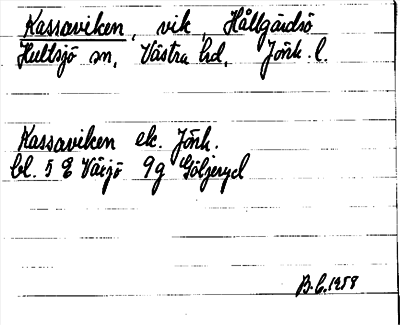 Kassaviken, vik, Hållgårdsö
Hultsjö sn, Västra hd, Jönk. l.
Kassaviken ek. Jönk.
bl. 5 E Växjö 9g Göljeryd
B.C. 1958